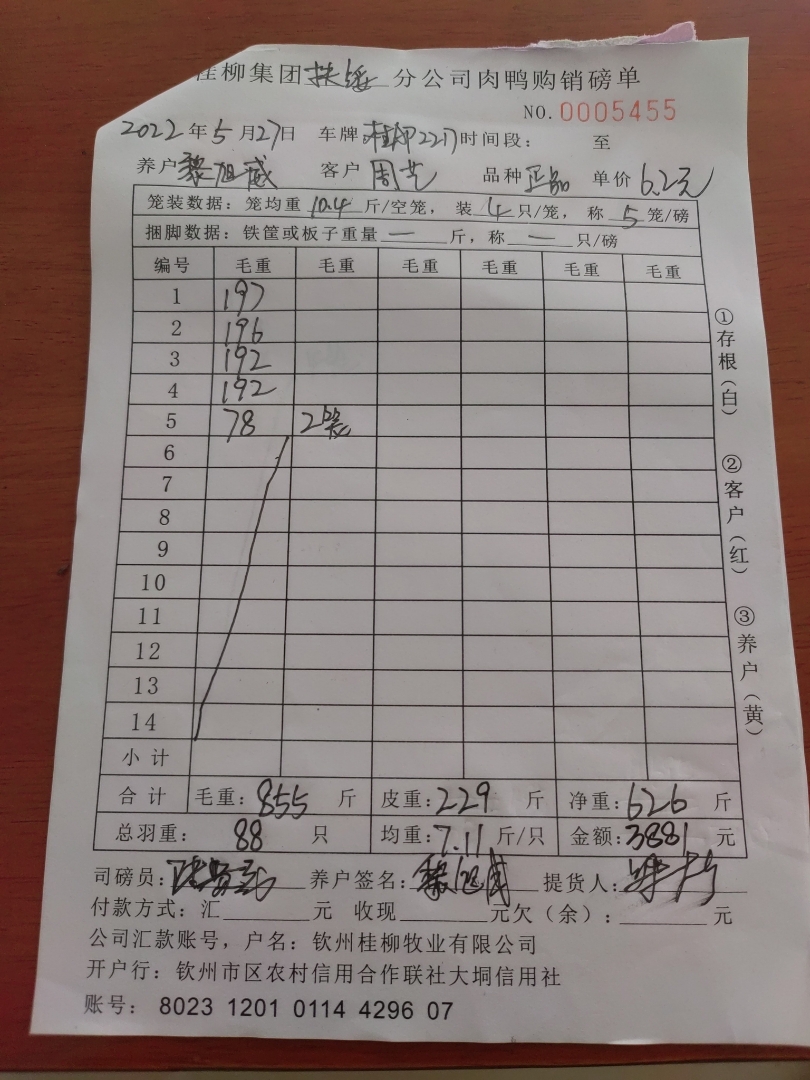 桂柳集团扶绥分公司肉鸭购销磅单
NO. 0005455
2022年5月27日 车牌:桂柳2217 时间段: 至
养户黎旭威 客户周艺 品种正品 单价6.2元
笼装数据:笼均重10.4斤/空笼,装4只/笼,称5笼/磅
捆脚数据:铁筐或板子重量一斤,称一只/磅
编号 毛重 毛重 毛重 毛重 毛重 毛重
1 197
2 196
3 192
4 192
5 78 2笼
6
7
8
9
10
11
12
13
14
小计
合计 毛重:855斤 皮重:229斤 净重:626斤
总羽重:88只 均重:7.11斤/只 金额:3881元
司磅员: 养户签名:黎旭威 提货人:
付款方式:汇 元 收现 元欠(余): 元
公司汇款账号,户名:钦州桂柳牧业有限公司
开户行:钦州市区农村信用合作联社大垌信用社
账号:8023 1201 0114 4296 07
①存根(白)
②客户(红)
③养户(黄)